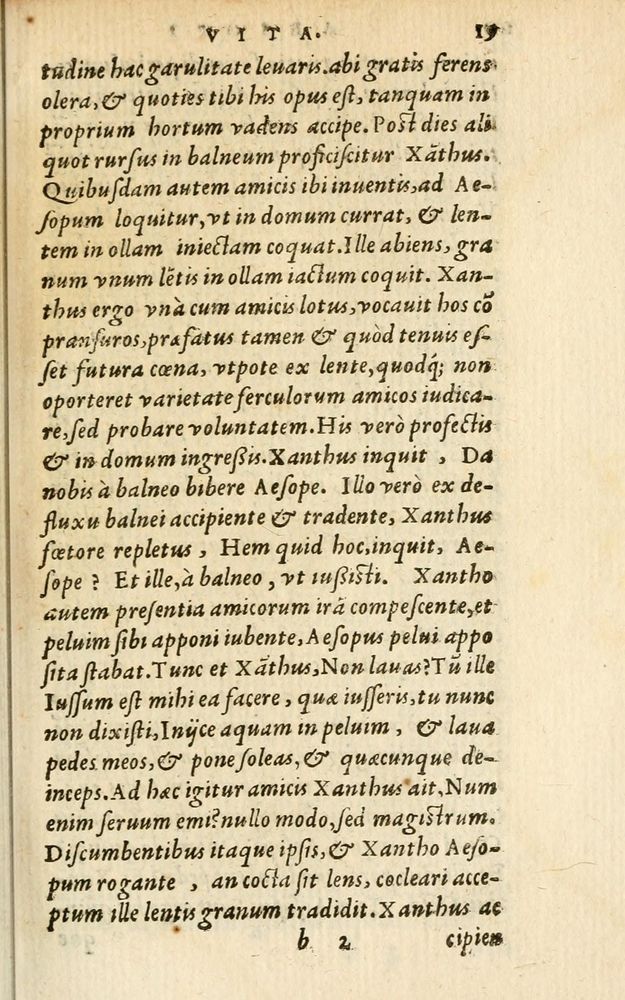 VITA. 19
tudine hac garulitate leuaris.abi gratis ferens
olera,& quoties tibi his opus est, tanquam in
proprium hortum vadens accipe.Post dies ali
quot rursus in balneum proficiscitur Xãthus.
Quibusdam autem amicis ibi inuentis,ad Ae-
sopum loquitur,vt in domum currat, & len-
tem in ollam iniectam coquat.Ille abiens,gra
num vnum lẽtis in ollam iactum coquit. Xan-
thus ergo vnà cum amicis lotus,vocauit hos cõ
pransuros,præfatus tamen & quòd tenuis es-
set futura cœna, vtpote ex lente,quodq́; non
oporteret varietate ferculorum amicos iudica-
re,sed probare voluntatem.His verò profectis
& in domum ingressis.Xanthus inquit , Da
nobis à balneo bibere Aesope. Illo verò ex de-
fluxu balnei accipiente & tradente, Xanthus
fœtore repletus , Hem quid hoc,inquit, Ae-
sope ? Et ille,à balneo , vt iussisti. Xantho
autem presentia amicorum irã compescente,et
peluim sibi apponi iubente,Aesopus pelui appo
sita stabat.Tunc et Xãthus,Non lauas?Tũ ille
Iussum est mihi ea facere , quæ iusseris,tu nunc
non dixisti,Inijce aquam in peluim , & laua
pedes meos,& pone soleas,& quæcunque de-
inceps.Ad hæc igitur amicis Xanthus ait,Num
enim seruum emi?nullo modo,sed magistrum.
Discumbentibus itaque ipsis,& Xantho Aeso-
pum rogante , an cocta sit lens, cocleari acce-
ptum ille lentis granum tradidit.Xanthus ac
b 2 cipien